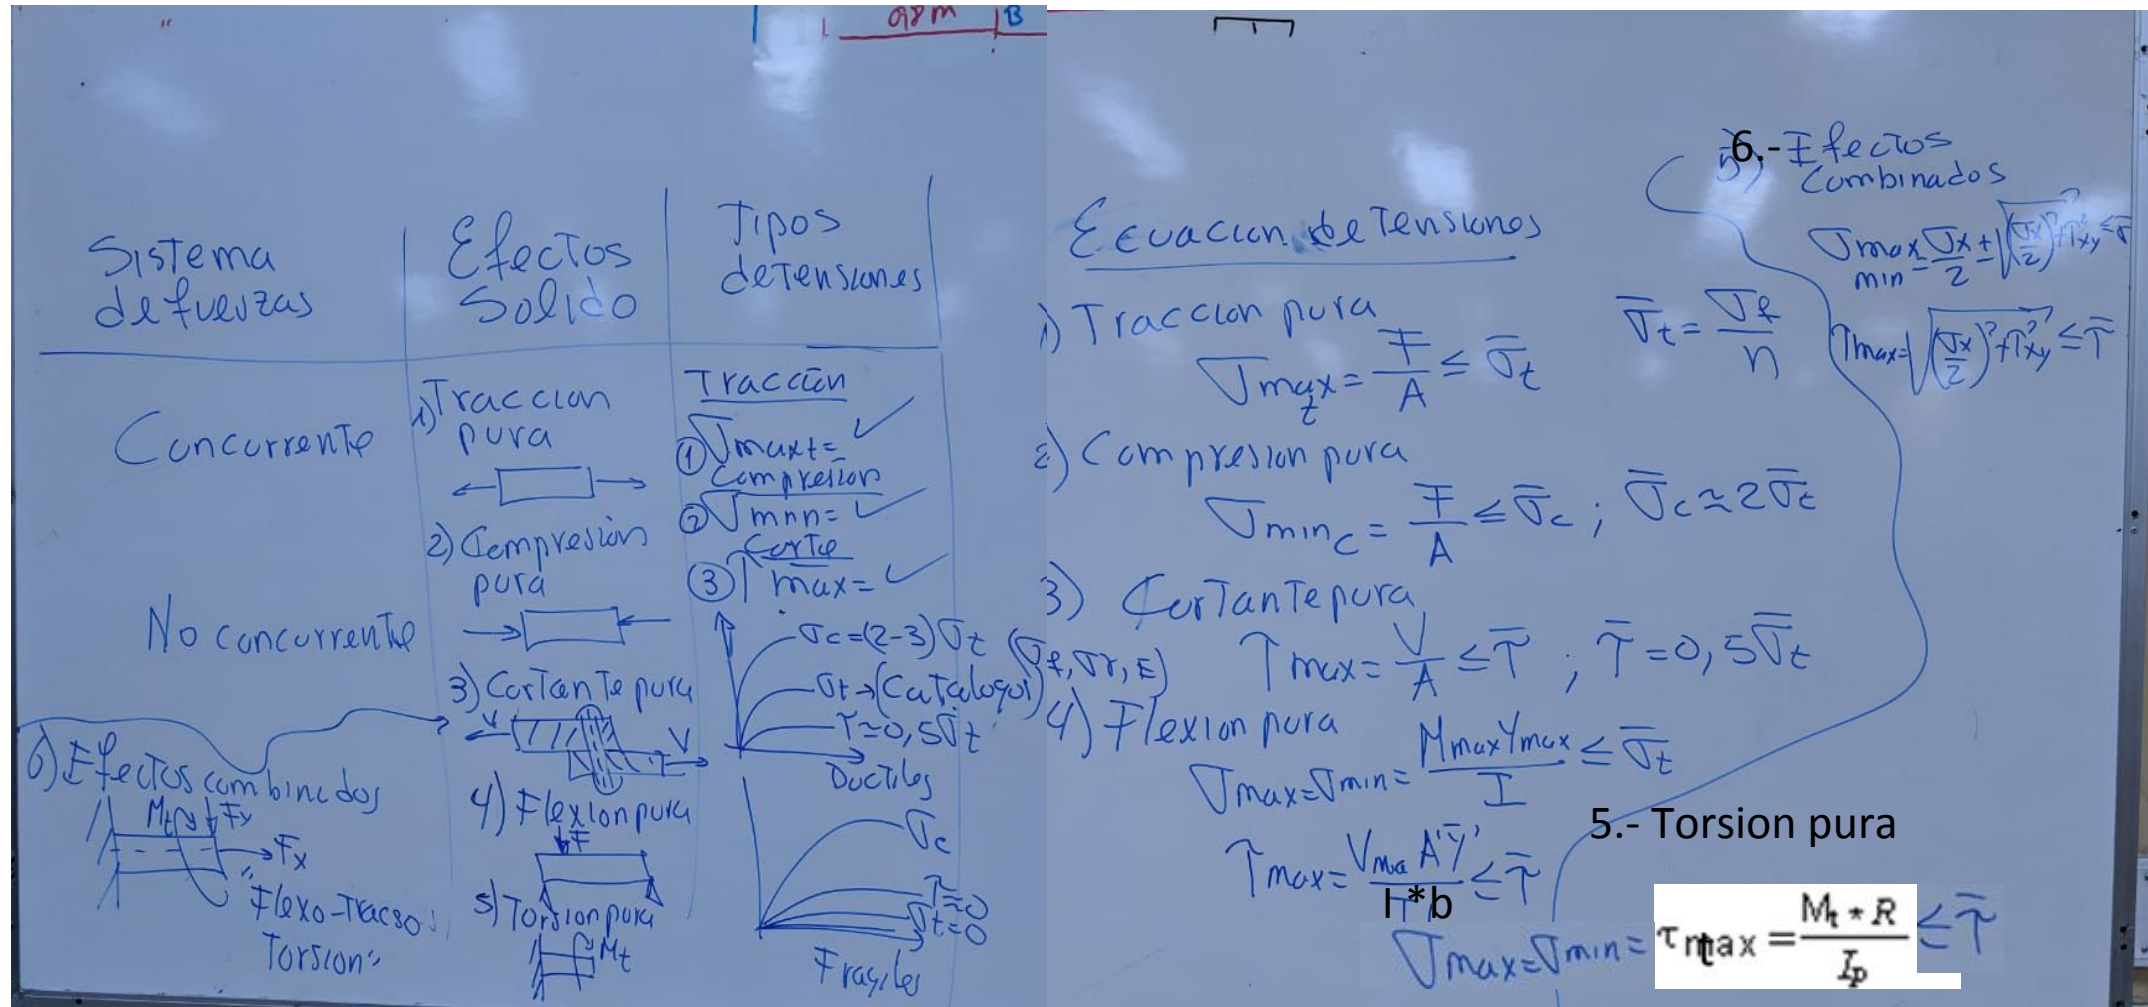 0,8 m
B
Sistema
de fuerzas
Efectos
Solido
Tipos
de Tensiones
Concurrente
No concurrente
6) Efectos combinados
Mt
Fy
Fx
"Flexo-Tracso
Torsion"
1) Traccion
pura
2) Compresion
pura
3) Cortante pura
V
V
4) Flexion pura
F
5) Torsion pura
Mt
Tracción
① σmaxt= ✓
Compresion
② σmnn= ✓
Corte
③ τmax= ✓
σc=(2-3)σt
σt→(Catalogui) (σf, σr, E)
τ≃0,5σt
Ductiles
σc
τ≃0
σt=0
Fragiles
Ecuacion de Tensiones
1) Traccion pura
σmax t = F/A ≤ σ̅t
σ̅t = σf/n
2) Compresion pura
σmin c = F/A ≤ σ̅c ; σ̅c ≃ 2σ̅t
3) Cortante pura
τmax = V/A ≤ τ̅ ; τ̅ = 0,5σ̅t
4) Flexion pura
σmax=σmin= Mmax Ymax / I ≤ σ̅t
τmax= Vma A' Y̅' / I*b ≤ τ̅
5.- Torsion pura
σmax=σmin= τmax = Mt * R / Ip ≤ τ̅
6.- Efectos
Combinados
σmax min = σx/2 ± √((σx/2)²+τ²xy) ≤ σ̅
τmax= √((σx/2)²+τ²xy) ≤ τ̅